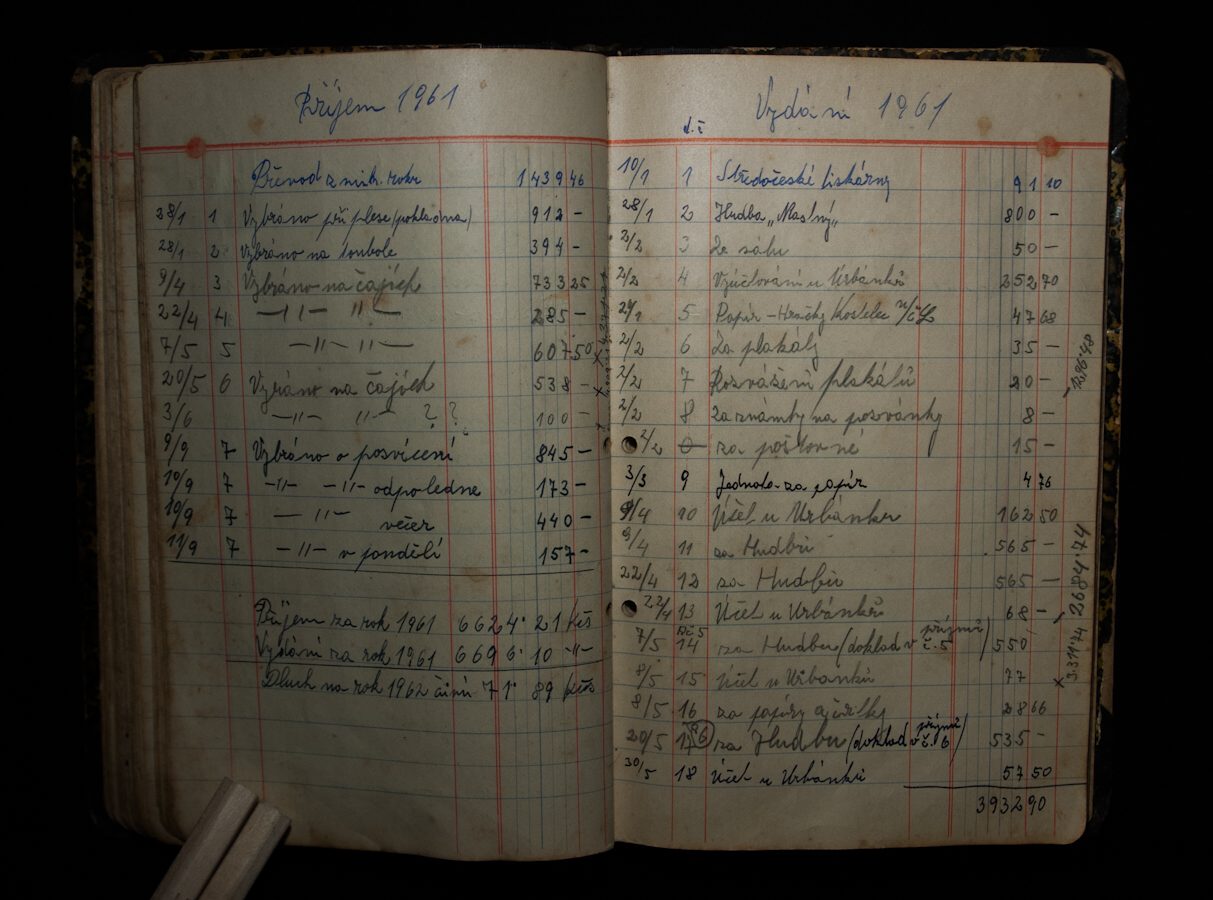 Příjem 1961
Převod z min. roku 1 439 46
28/1 1 Vybráno při plese (pokladna) 912 -
28/1 2 Vybráno na tombole 394 -
9/4 3 Vybráno na čajích 733 25
22/4 4 —"— " — 285 -
7/5 5 —"— "— 607 50
20/5 6 Vybráno na čajích 538 -
3/6 —"— "— ? ? 100 -
9/9 7 Vybráno o posvícení 845 -
10/9 7 —"— —"— odpoledne 173 -
10/9 7 —"— večer 440 -
11/9 7 —"— v pondělí 157 -
Příjem za rok 1961 6624·21 Kčs
Vydání za rok 1961 6696·10 -"-
Dluh na rok 1962 činí 71·89 Kčs
Vydání 1961
d. č
10/1 1 Středočeské tiskárny 91 10
28/1 2 Hudba „Maslný" 800 -
2/2 3 Za sálu 50 -
2/2 4 Vyúčtování u Urbánků 252 70
5 Papír - Hračky Kostelec n/Č L 47 68
2/2 6 Za plakáty 35 -
2/2 7 Rozvášení plakátů 20 -
2/2 8 Za známky na pozvánky 8 -
2/2 za poštovné 15 -
3/3 9 Jednota za papír 4 76
9/4 10 Účet u Urbánků 162 50
9/4 11 za Hudbu 565 -
22/4 12 za Hudbu 565 -
22/4 13 Účet u Urbánků 68 -
7/5 14 za Hudbu (doklad v příjmu č. 5) 550
8/5 15 Účet u Urbánků 77
8/5 16 za papíry a 28 66
20/5 17 za Hudbu (doklad v příjmu č. 6) 535 -
30/5 18 Účet u Urbánků 57 50
3932 90
1296·48
2684·74
3311·24